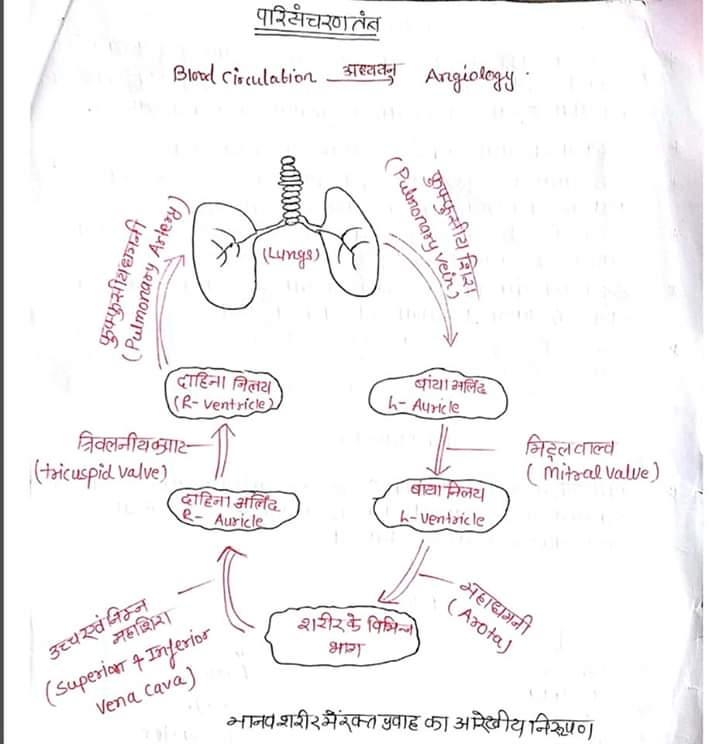 परिसंचरण तंत्र
Blood circulation अध्ययन Angiology.
फुफ्फुसीय धमनी
(Pulmonary Artery)
(Lungs)
फुफ्फुसीय शिरा
(Pulmonary vein)
दाहिना निलय
(R- ventricle)
बांया अलिंद
L- Auricle
त्रिवलनीय कपाट
(tricuspid valve)
मिट्रल वाल्व
(Mitral valve)
दाहिना अलिंद
R- Auricle
बांया निलय
L-ventricle
उच्च एवं निम्न
महाशिरा
(Superior + Inferior
vena cava)
शरीर के विभिन्न
भाग
महाधमनी
(Arota)
मानव शरीर में रक्त प्रवाह का आरेखीय निरूपण